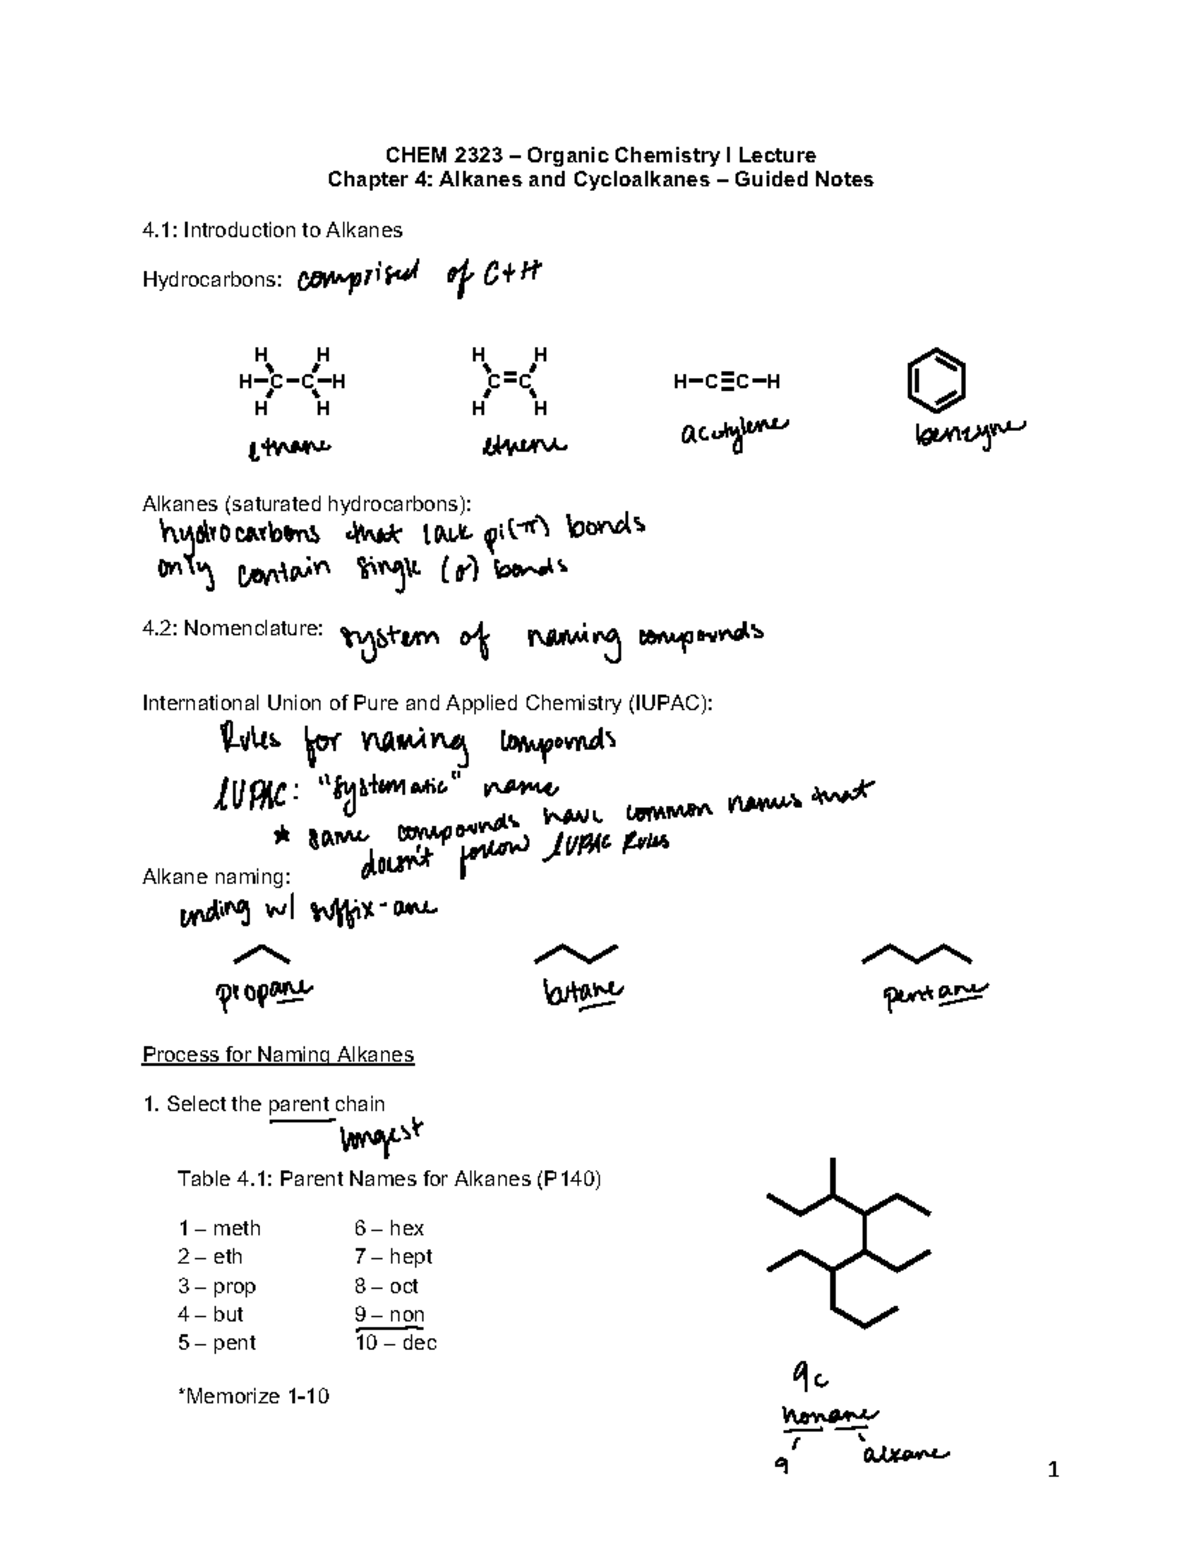 CHEM 2323 – Organic Chemistry I Lecture
Chapter 4: Alkanes and Cycloalkanes – Guided Notes
4.1: Introduction to Alkanes
Hydrocarbons: comprised of C+H
H H H H
H-C-C-H C=C H-C≡C-H
H H H H
ethane ethene acetylene benzyne
Alkanes (saturated hydrocarbons):
hydrocarbons that lack pi(π) bonds
only contain single (σ) bonds
4.2: Nomenclature: system of naming compounds
International Union of Pure and Applied Chemistry (IUPAC):
Rules for naming compounds
IUPAC: "systematic" name
* same compounds have common names that
doesn't follow IUPAC Rules
Alkane naming:
ending w/ suffix-ane
propane butane pentane
Process for Naming Alkanes
1. Select the parent chain
longest
Table 4.1: Parent Names for Alkanes (P140)
1 – meth 6 – hex
2 – eth 7 – hept
3 – prop 8 – oct
4 – but 9 – non
5 – pent 10 – dec
*Memorize 1-10
9c
nonane
9 alkane
1